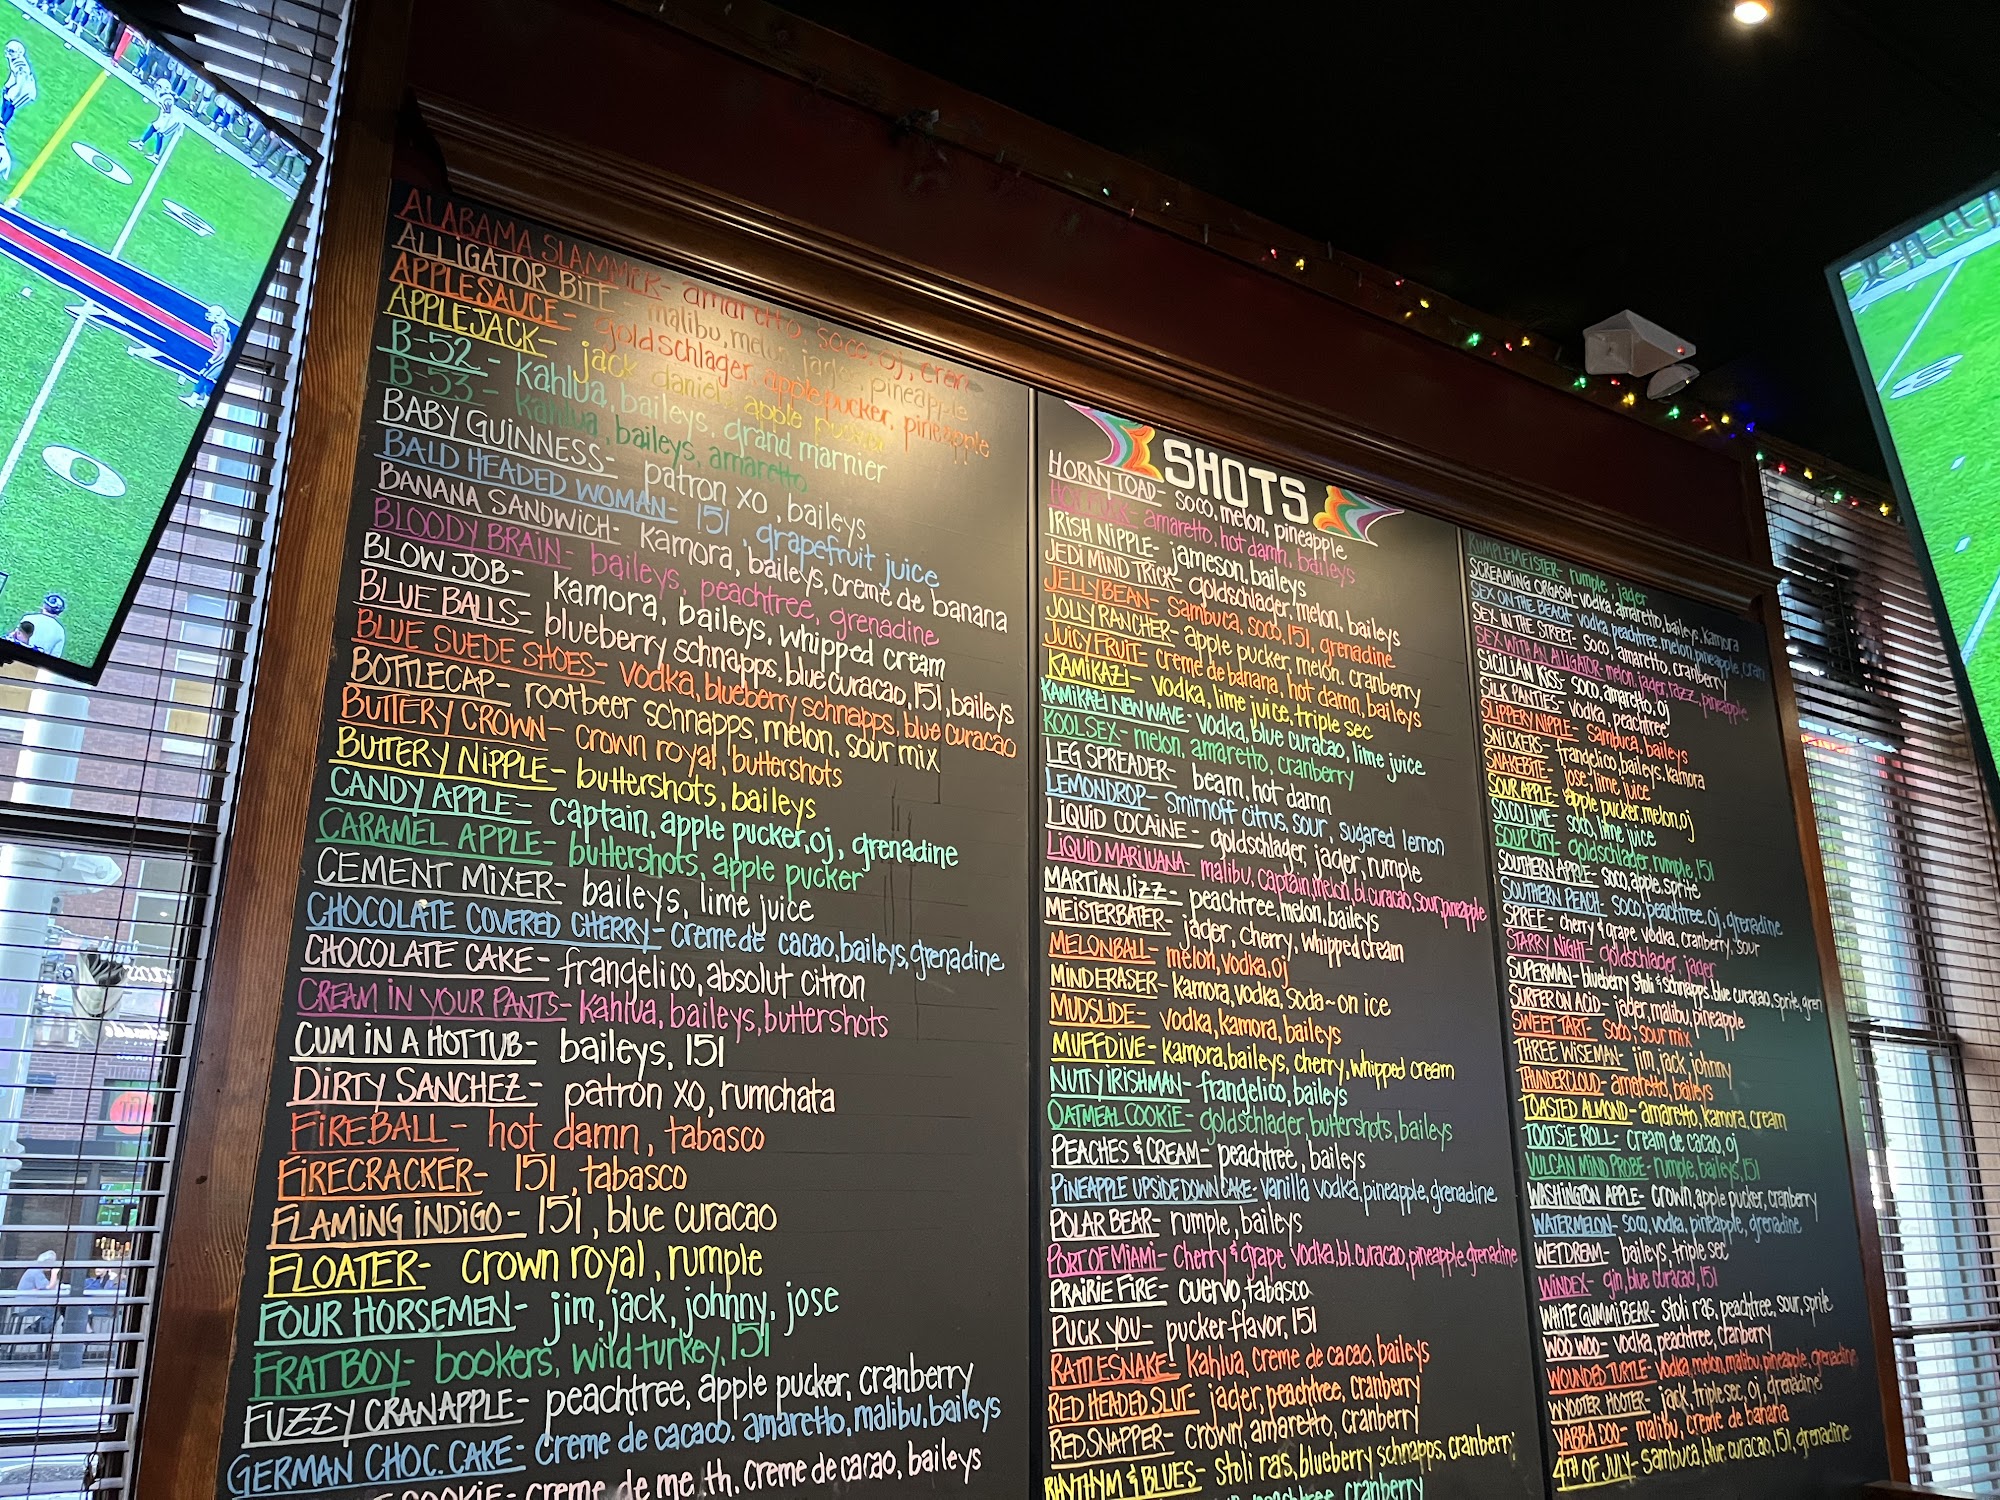 ALABAMA SLAMMER- amaretto, soco, oj, cran
ALLIGATOR BITE - malibu, melon, jager, pineapple
APPLESAUCE- goldschlager, apple pucker, pineapple
APPLEJACK- jack daniels, apple pucker
B-52 - kahlua, baileys, grand marnier
B-53 - kahlua, baileys, amaretto
BABY GUINNESS- patron xo, baileys
BALD HEADED WOMAN- 151, grapefruit juice
BANANA SANDWICH- kamora, baileys, creme de banana
BLOODY BRAIN- baileys, peachtree, grenadine
BLOW JOB- kamora, baileys, whipped cream
BLUE BALLS- blueberry schnapps, blue curacao, 151, baileys
BLUE SUEDE SHOES- vodka, blueberry schnapps, blue curacao
BOTTLECAP- rootbeer schnapps, melon, sour mix
BUTTERY CROWN- crown royal, buttershots
BUTTERY NIPPLE- buttershots, baileys
CANDY APPLE- captain, apple pucker, oj, grenadine
CARAMEL APPLE- buttershots, apple pucker
CEMENT MIXER- baileys, lime juice
CHOCOLATE COVERED CHERRY- creme de cacao, baileys, grenadine
CHOCOLATE CAKE- frangelico, absolut citron
CREAM IN YOUR PANTS- kahlua, baileys, buttershots
CUM IN A HOT TUB- baileys, 151
DIRTY SANCHEZ- patron xo, rumchata
FIREBALL- hot damn, tabasco
FIRECRACKER- 151, tabasco
FLAMING INDIGO- 151, blue curacao
FLOATER- crown royal, rumple
FOUR HORSEMEN- jim, jack, johnny, jose
FRAT BOY- bookers, wild turkey, 151
FUZZY CRANAPPLE- peachtree, apple pucker, cranberry
GERMAN CHOC. CAKE- creme de cacao, amaretto, malibu, baileys
COOKIE- creme de me.th, creme de cacao, baileys
SHOTS
HORNY TOAD- soco, melon, pineapple
HOT FUCK- amaretto, hot damn, baileys
IRISH NIPPLE- jameson, baileys
JEDI MIND TRICK- goldschlager, melon, baileys
JELLYBEAN- sambuca, soco, 151, grenadine
JOLLY RANCHER- apple pucker, melon, cranberry
JUICY FRUIT- creme de banana, hot damn, baileys
KAMIKAZI- vodka, lime juice, triple sec
KAMIKAZI NEW WAVE- vodka, blue curacao, lime juice
KOOL SEX- melon, amaretto, cranberry
LEG SPREADER- beam, hot damn
LEMONDROP- smirnoff citrus, sour, sugared lemon
LIQUID COCAINE- goldschlager, jager, rumple
LIQUID MARIJUANA- malibu, captain, melon, bl. curacao, sour, pineapple
MARTIAN JIZZ- peachtree, melon, baileys
MEISTERBATER- jager, cherry, whipped cream
MELONBALL- melon, vodka, oj
MIND ERASER- kamora, vodka, soda~on ice
MUDSLIDE- vodka, kamora, baileys
MUFFDIVE- kamora, baileys, cherry, whipped cream
NUTTY IRISHMAN- frangelico, baileys
OATMEAL COOKIE- goldschlager, buttershots, baileys
PEACHES & CREAM- peachtree, baileys
PINEAPPLE UPSIDE DOWN CAKE- vanilla vodka, pineapple, grenadine
POLAR BEAR- rumple, baileys
PORT OF MIAMI- cherry & grape vodka, bl. curacao, pineapple, grenadine
PRAIRIE FIRE- cuervo, tabasco
PUCK YOU- pucker flavor, 151
RATTLESNAKE- kahlua, creme de cacao, baileys
RED HEADED SLUT- jager, peachtree, cranberry
RED SNAPPER- crown, amaretto, cranberry
RHYTHYM & BLUES- stoli ras, blueberry schnapps, cranberry
peachtree, cranberry
RUMPLEMEISTER- rumple, jager
SCREAMING ORGASM- vodka, amaretto, baileys, kamora
SEX ON THE BEACH- vodka, peachtree, melon, pineapple, cran
SEX IN THE STREET- soco, amaretto, cranberry
SEX WITH AN ALLIGATOR- melon, jager, razz, pineapple
SICILIAN KISS- soco, amaretto, oj
SILK PANTIES- vodka, peachtree
SLIPPERY NIPPLE- sambuca, baileys
SNICKERS- frangelico, baileys, kamora
SNAKEBITE- jose, lime juice
SOUR APPLE- apple pucker, melon, oj
SOCO LIME- soco, lime juice
SOUP CITY- goldschlager, rumple, 151
SOUTHERN APPLE- soco, apple, sprite
SOUTHERN PEACH- soco, peachtree, oj, grenadine
SPREE- cherry & grape vodka, cranberry, sour
STARRY NIGHT- goldschlager, jager
SUPERMAN- blueberry stoli & schnapps, blue curacao, sprite, gren
SURFER ON ACID- jager, malibu, pineapple
SWEET TART- soco, sour mix
THREE WISEMAN- jim, jack, johnny
THUNDERCLOUD- amaretto, baileys
TOASTED ALMOND- amaretto, kamora, cream
TOOTSIE ROLL- cream de cacao, oj
VULCAN MIND PROBE- rumple, baileys, 151
WASHINGTON APPLE- crown, apple pucker, cranberry
WATERMELON- soco, vodka, pineapple, grenadine
WET DREAM- baileys, triple sec
WINDEX- gin, blue curacao, 151
WHITE GUMMI BEAR- stoli ras, peachtree, sour, sprite
WOO WOO- vodka, peachtree, cranberry
WOUNDED TURTLE- vodka, melon, malibu, pineapple, grenadine
WYOOTER HOOTER- jack, triple sec, oj, grenadine
YABBA DOO- malibu, creme de banana
4TH OF JULY- sambuca, blue curacao, 151, grenadine